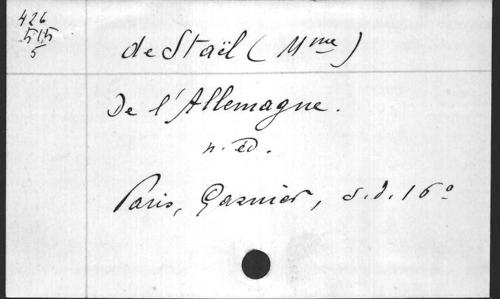 426
515
5
de Staël (Mme)
De l'Allemagne.
n. éd.
Paris, Garnier, s.d. 16°